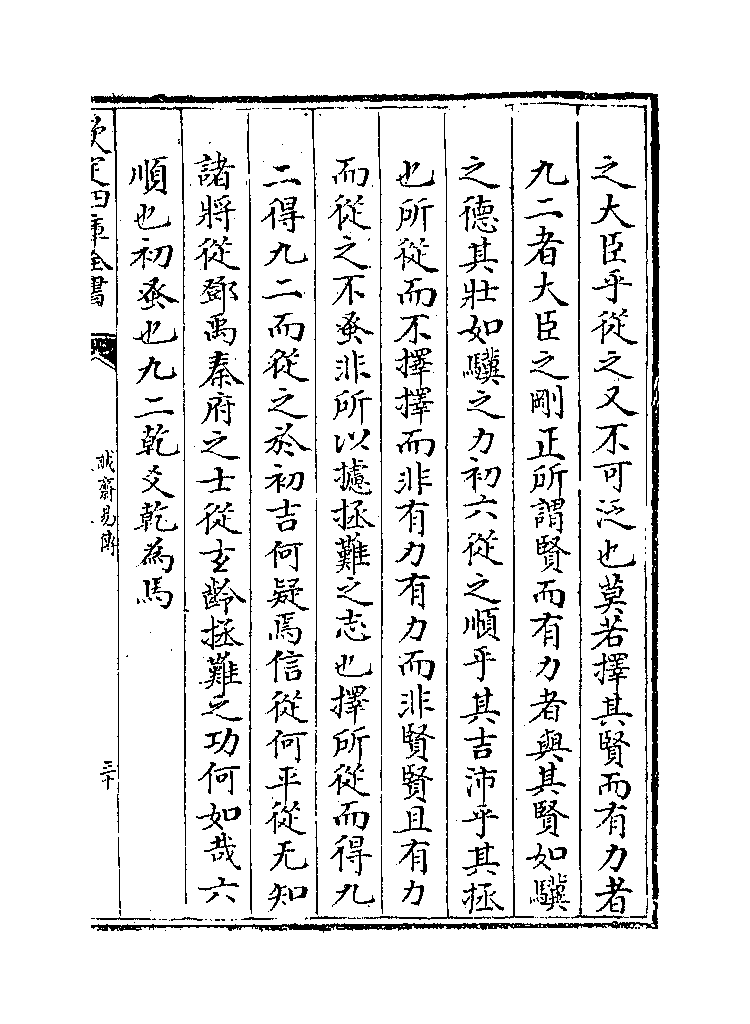 之大臣乎從之又不可泛也莫若擇其賢而有力者
九二者大臣之剛正所謂賢而有力者與其賢如驥
之德其壯如驥之力初六從之順乎其吉沛乎其拯
也所從而不擇擇而非有力有力而非賢賢且有力
而從之不蚤非所以攄拯難之志也擇所從而得九
二得九二而從之於初吉何疑焉信從何平從无知
諸將從鄧禹秦府之士從玄齡拯難之功何如哉六
順也初蚤也九二乾爻乾為馬
欽定四庫全書
誠齋易傳
三十